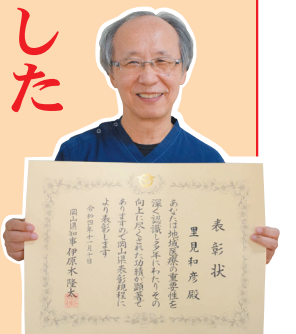 した
表彰状
里見和彦殿
あなたは地域医療の重要性を
深く認識し多年にわたりその
向上に尽くされた功績が顕著で
ありますので岡山県表彰規程に
より表彰します
令和四年十一月十日
岡山県知事 伊原木隆太